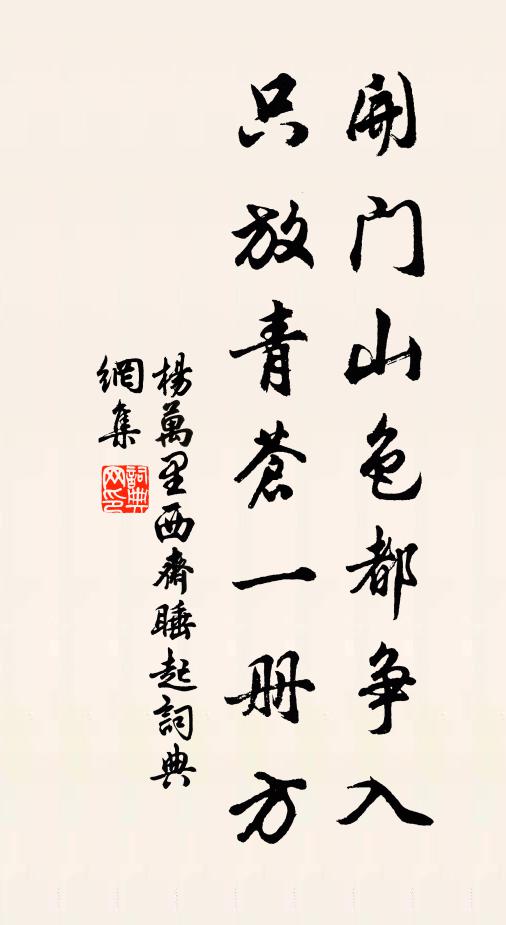 開门山色都争入
只放青蒼一册方
楊萬里西齋睡起詞典
網集
詞典网印